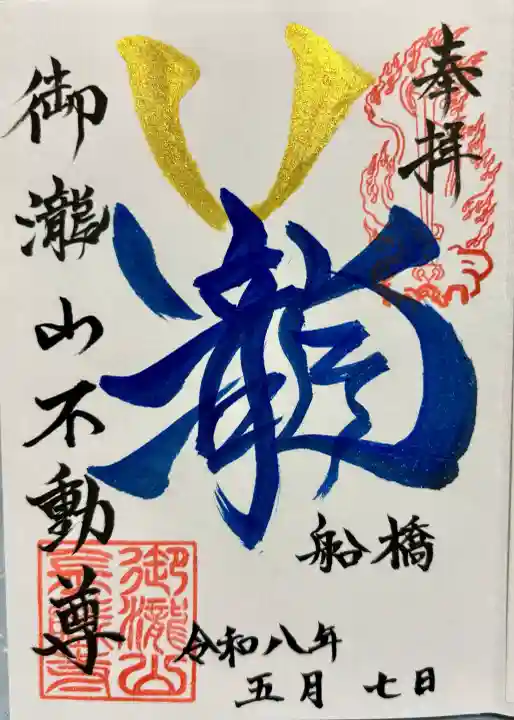 奉拝
瀧
船橋
令和八年
五月七日
御瀧山不動尊
御瀧山